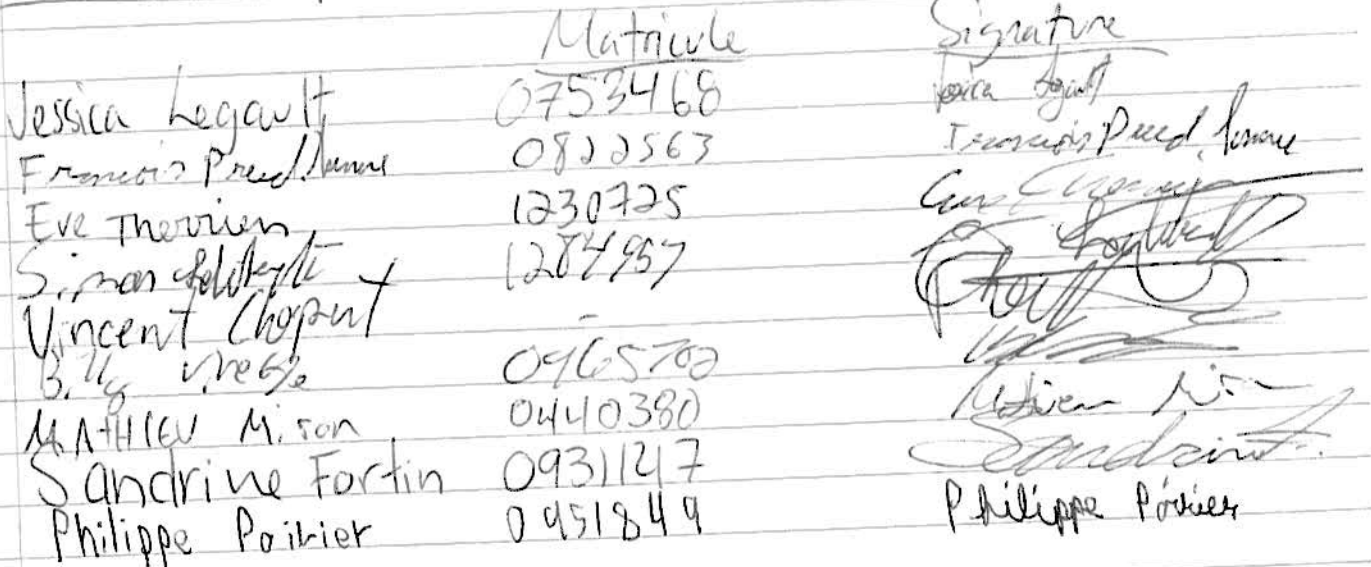 Matricule Signature
Jessica Legault 0753468 Jessica Legault
Francois Prud'homme 0822563 Francois Prud'homme
Eve Therrien 1230725
Simon 1284957
Vincent Chaput -
Billy 0965702
MATHIEU Miron 0440380
Sandrine Fortin 0931247 Sandrine F.
Philippe Poirier 0951849 Philippe Poirier